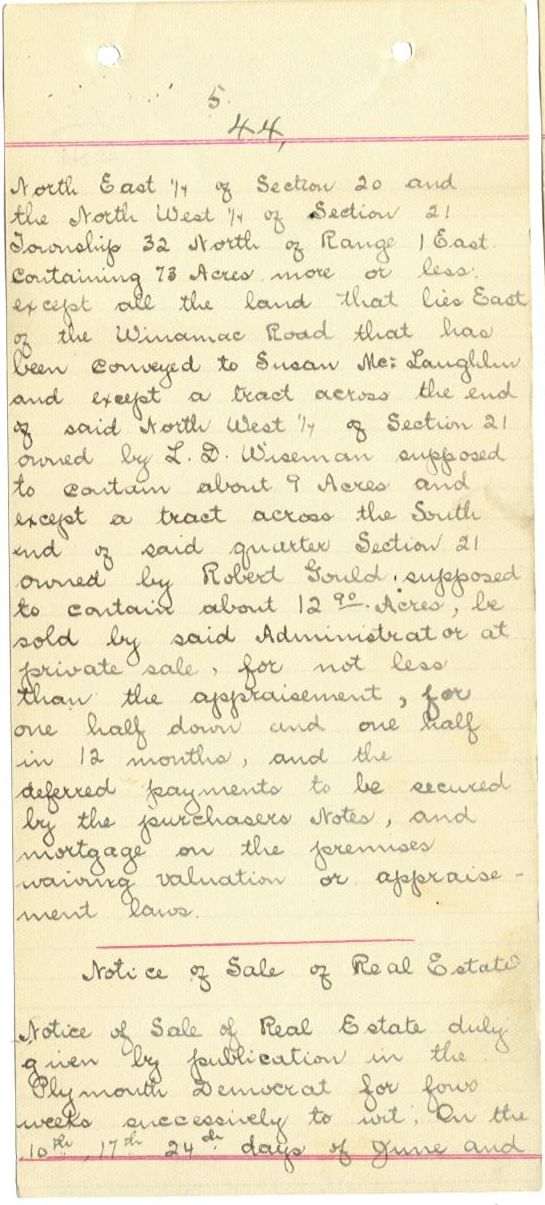 5
44,
North East 1/4 of Section 20 and
the North West 1/4 of Section 21
Township 32 North of Range 1 East
containing 73 Acres more or less.
except all the land that lies East
of the Winamac Road that has
been conveyed to Susan Mc: Laughlin
and except a tract across the end
of said North West 1/4 of Section 21
owned by L. D. Wiseman supposed
to contain about 9 Acres and
except a tract across the South
end of said quarter Section 21
owned by Robert Gould, supposed
to contain about 12 90. Acres, be
sold by said Administrator at
private sale, for not less
than the appraisement, for
one half down and one half
in 12 months, and the
deferred payments to be secured
by the purchasers Notes, and
mortgage on the premises
waiving valuation or appraise-
ment laws.
Notice of Sale of Real Estate
Notice of Sale of Real Estate duly
given by publication in the
Plymouth Democrat for four
weeks successively to wit. On the
10th, 17th 24th days of June and